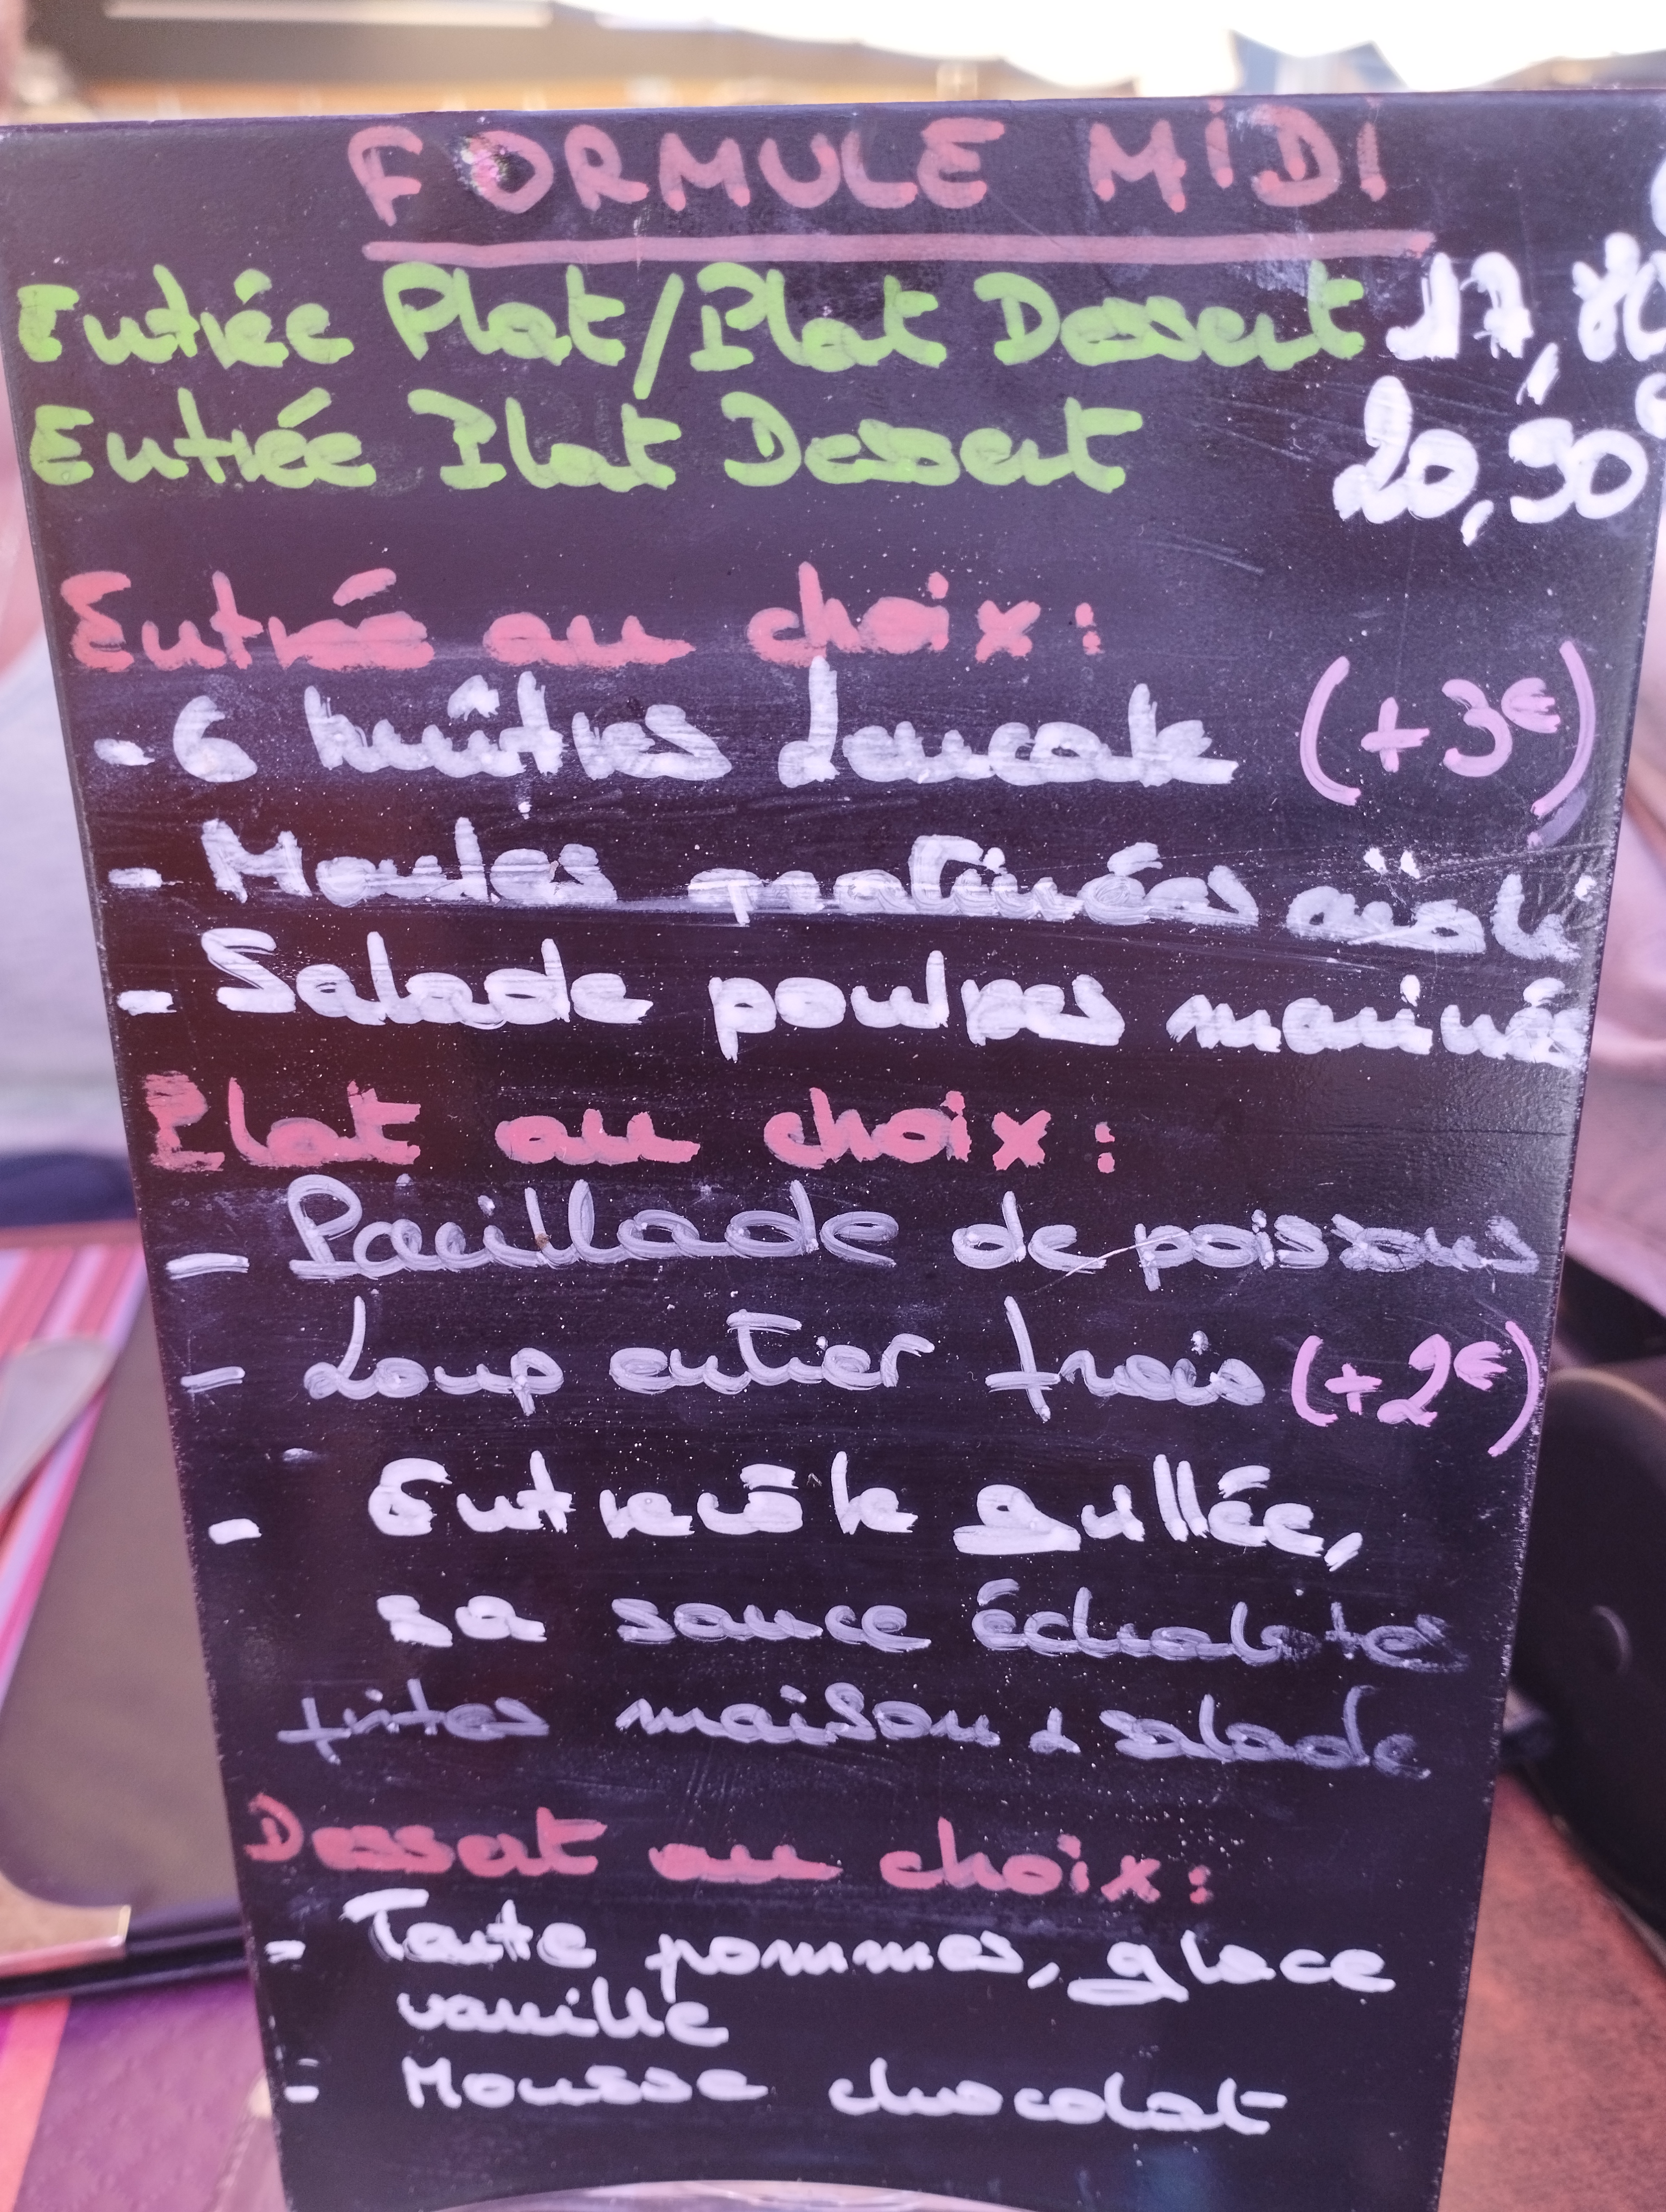 FORMULE MIDI
Entrée Plat/Plat Dessert 17,
Entrée Plat Dessert 20,90€
Entrée au choix:
- 6 huîtres Leucate (+3€)
- Moules gratinées aïoli
- Salade poulpes marinés
Plat au choix:
- Parillade de poissons
- Loup entier frais (+2€)
- Entrecôte grillée,
sa sauce échalote
frites maison & salade
Dessert au choix:
- Tarte pommes, glace
vanille
- Mousse chocolat